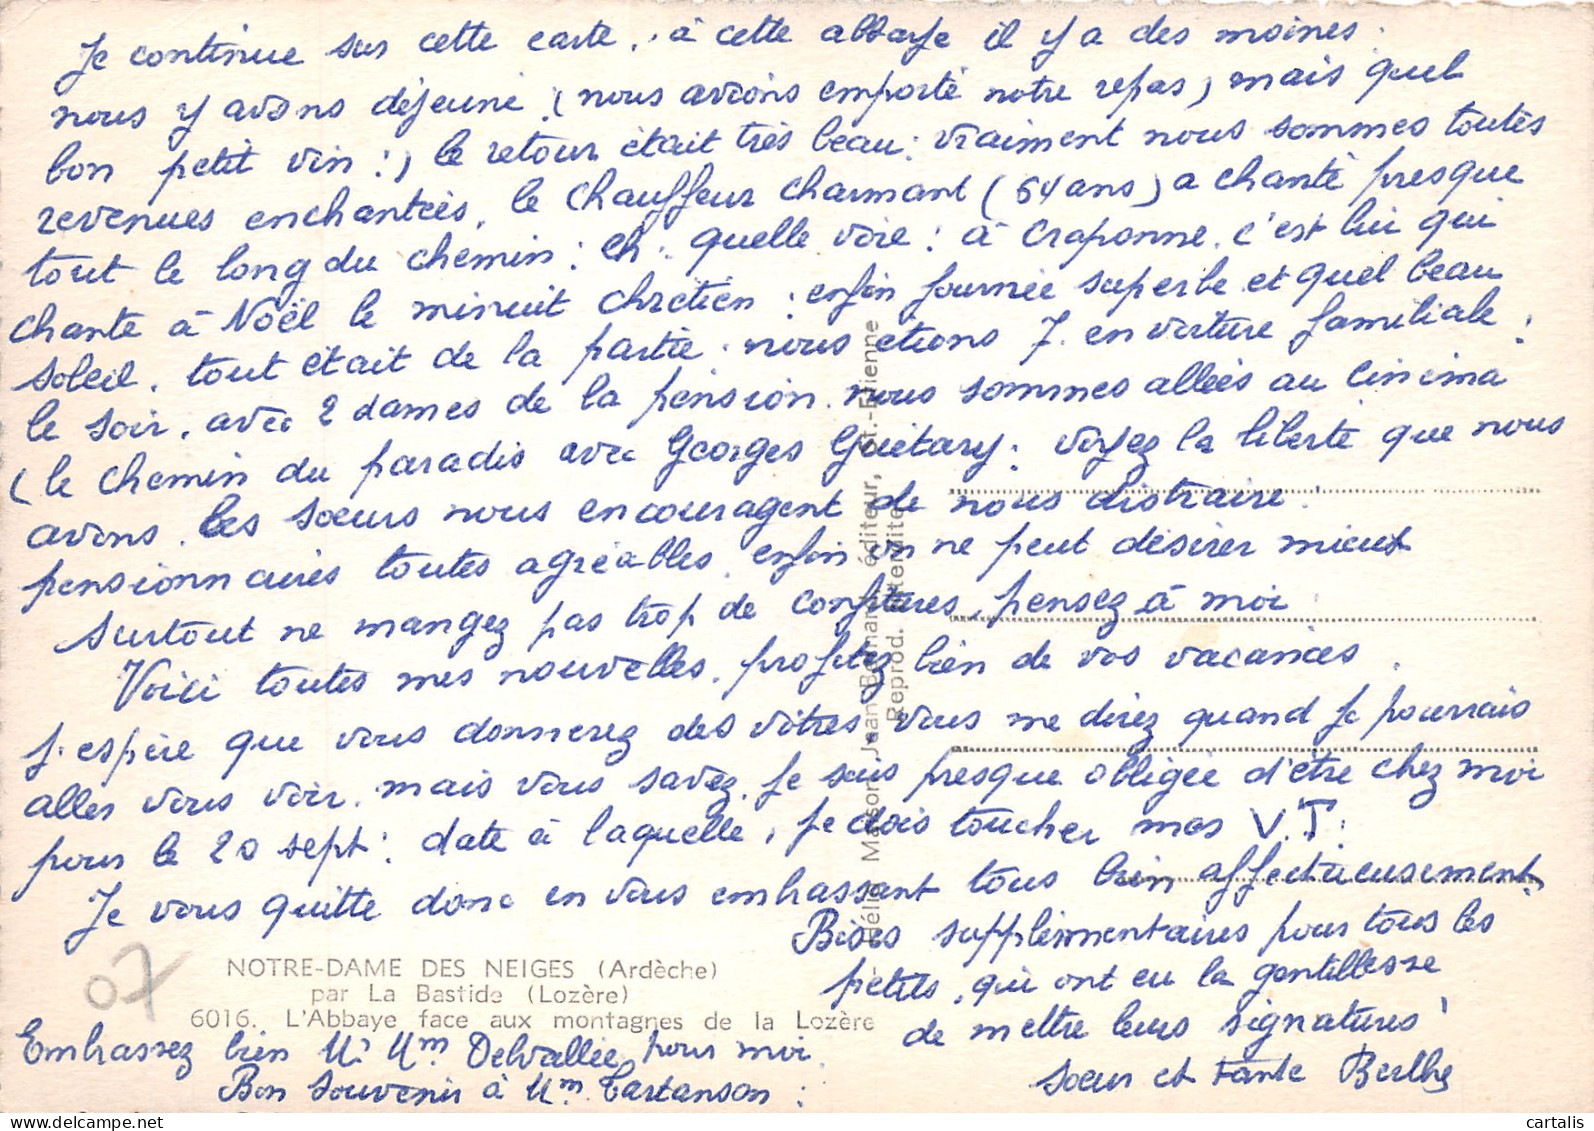 Je continue sur cette carte, à cette abbaye il y a des moines.
nous y avons déjeuné (nous avions emporté notre repas, mais quel
bon petit vin !) le retour était très beau. vraiment nous sommes toutes
revenues enchantées, le chauffeur charmant (64 ans) a chanté presque
tout le long du chemin : eh. quelle voie ! à Craponne. c'est lui qui
chante à Noël le minuit chrétien ; enfin journée superbe et quel beau
soleil. tout était de la partie. nous etions 7. en voiture familiale.
le soir, avec 2 dames de la pension. nous sommes allées au cinéma
(le chemin du paradis avec Georges Guétary. voyez la liberté que nous
avons. les soeurs nous encouragent de nous distraire.
pensionnaires toutes agréables. enfin on ne peut désirer mieux
surtout ne mangez pas trop de confitures, pensez à moi.
Voici toutes mes nouvelles. profitez bien de vos vacances.
J'espère que vous donnerez des vôtres. vous me direz quand je pourrais
aller vous voir. mais vous savez. je suis presque obligée d'être chez moi
pour le 20 sept : date à laquelle, je dois toucher mes V.T.
Je vous quitte donc en vous embrassant tous bien affectueusement.
Bises supplémentaires pour tous les
petits, qui ont eu la gentillesse
de mettre leurs signatures !
soeur et tante Berthe
07
NOTRE-DAME DES NEIGES (Ardèche)
par La Bastide (Lozère)
6016. L'Abbaye face aux montagnes de la Lozère
Embrassez bien Mr Mme Delvallée pour moi.
Bon souvenir à Mme Tartanson.
Hélio Maison Jean Bernard, éditeur, St.-Etienne
Reprod. interdite
cartalis